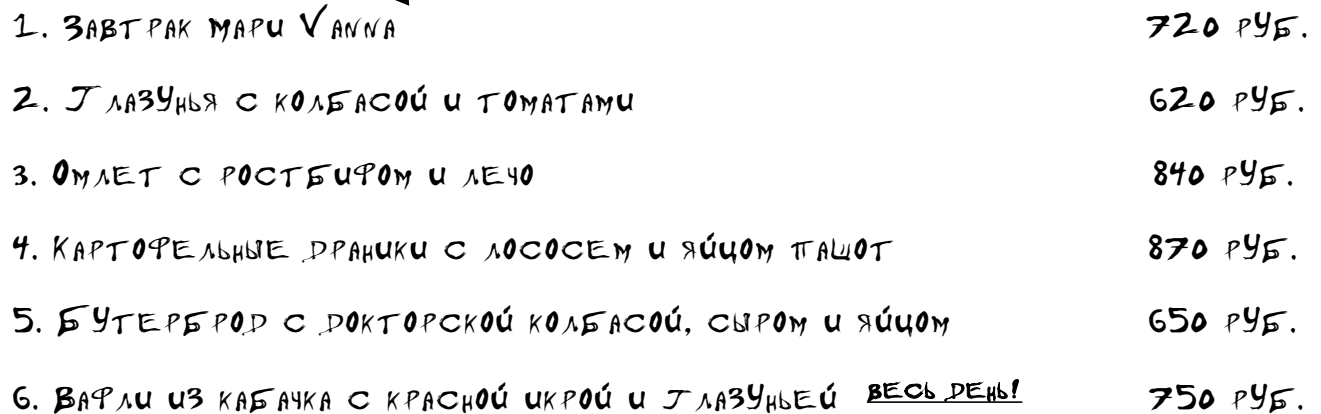 1. Завтрак мари Vanna 720 руб.
2. Глазунья с колбасой и томатами 620 руб.
3. Омлет с ростбифом и лечо 840 руб.
4. Картофельные драники с лососем и яйцом пашот 870 руб.
5. Бутерброд с докторской колбасой, сыром и яйцом 650 руб.
6. Вафли из кабачка с красной икрой и глазуньей весь день! 750 руб.